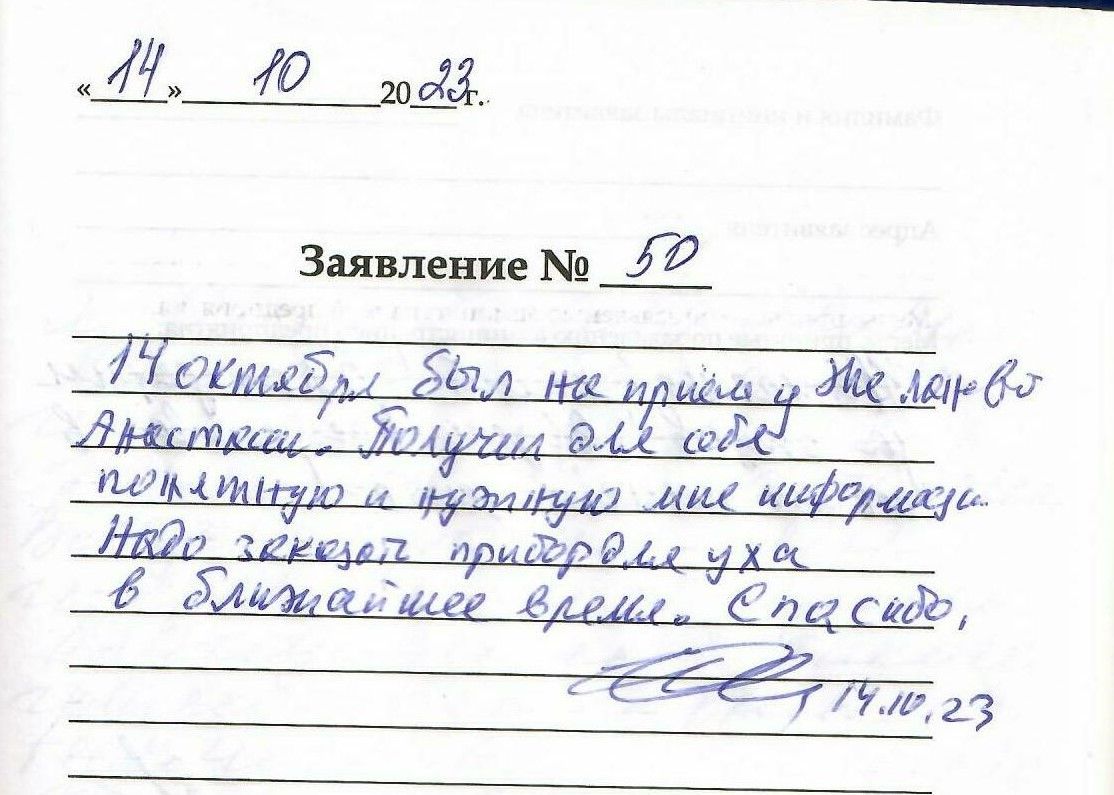 «14» 10 2023г.
Заявление № 50
14 октября был на приеме у
Анастасии. Получил для себя
понятную и нужную мне информаци
Надо заказать прибор для уха
в ближайшее время. Спасибо,
14.10.23